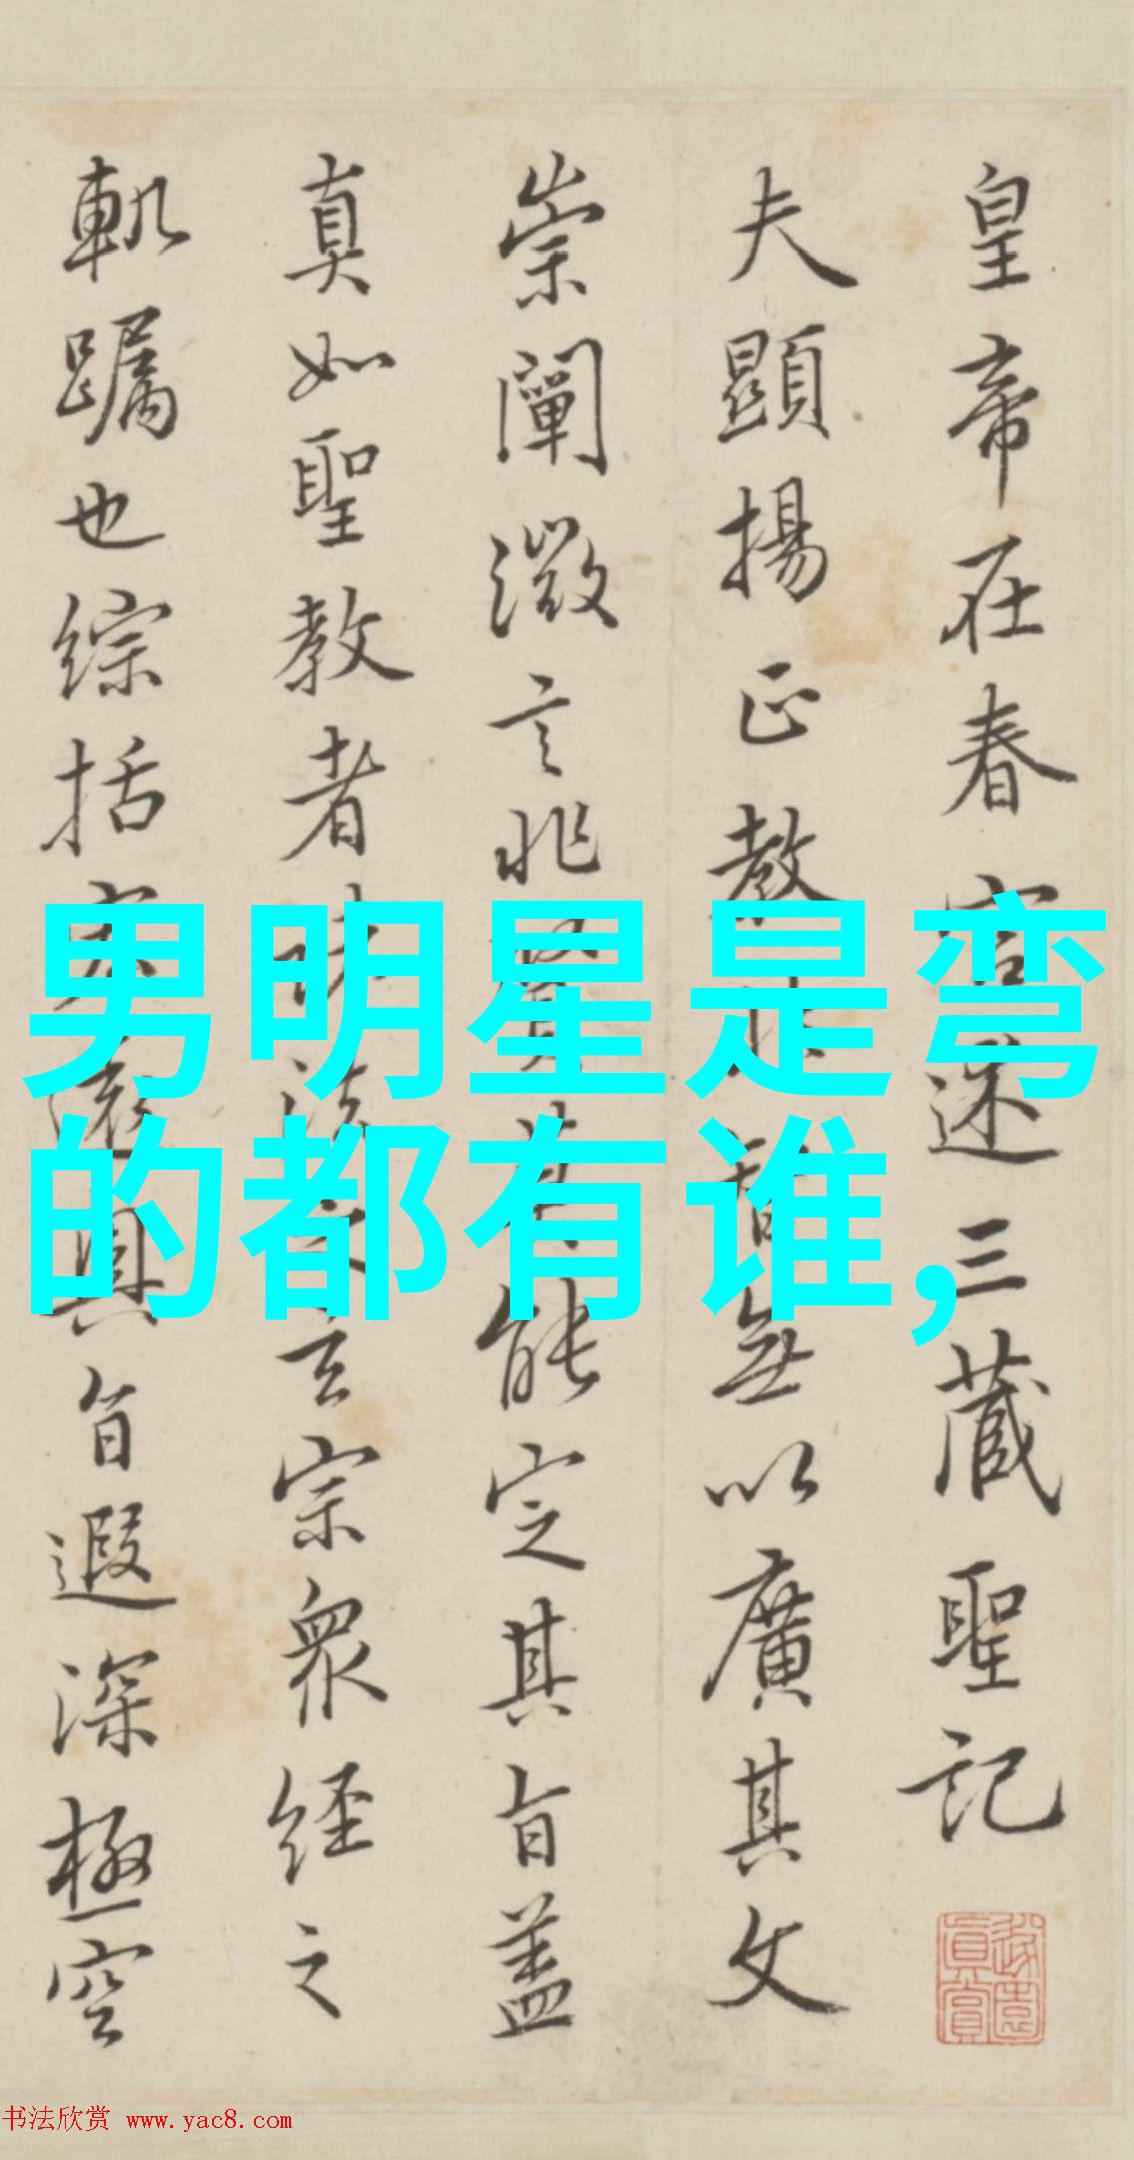 皇帝在春宫述三藏聖記
夫顯揚正教非智無以廣其文
崇闡微言非賢莫能定其旨蓋
真如聖教者諸法之玄宗衆經之
軌躅也綜括宏遠奥旨遐深極空
男明星是弯
的都有谁,
书法欣赏 www.yac8.com